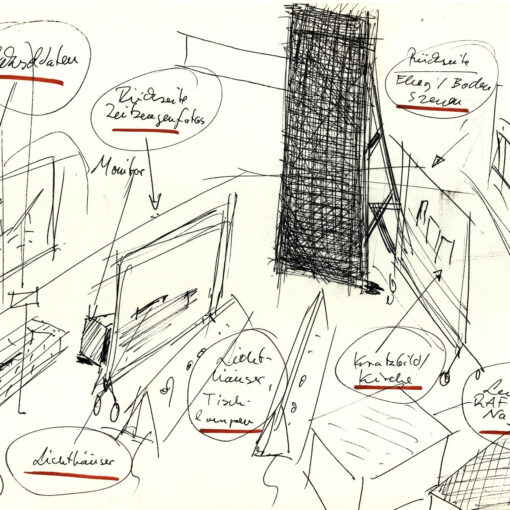 Rückseite
Zeitzeugenfotos
Monitor
Rückseite
Flieg'/Boden
Szenen
Licht-
häuser,
Tisch-
lampen
Kratzbild/
Kirche
RAF
Na
Lichthäuser